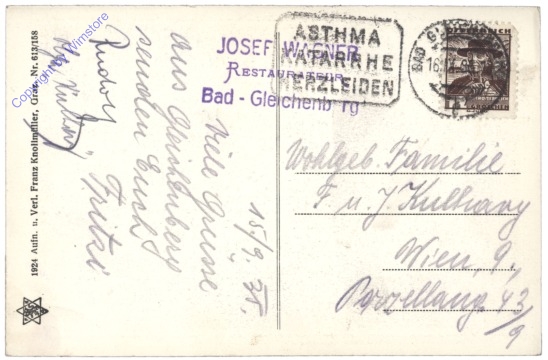 1924 Aufn. u. Verl. Franz Knollmüller, Graz. Nr. 613/158
Copyright by Wimstore
JOSEF WAGNER
RESTAURATEUR
Bad - Gleichenb rg
ASTHMA
KATARRHE
HERZLEIDEN
BAD GL
16.IX.35
ÖSTERREICH
15/9. 35.
Viele Grüsse
aus Gleichenberg
senden Euch
Fritzi
Rudolf
Wohlgeb. Familie
F. u. J. Kulhavy
Wien, 9.,
Porzellang. 43/9